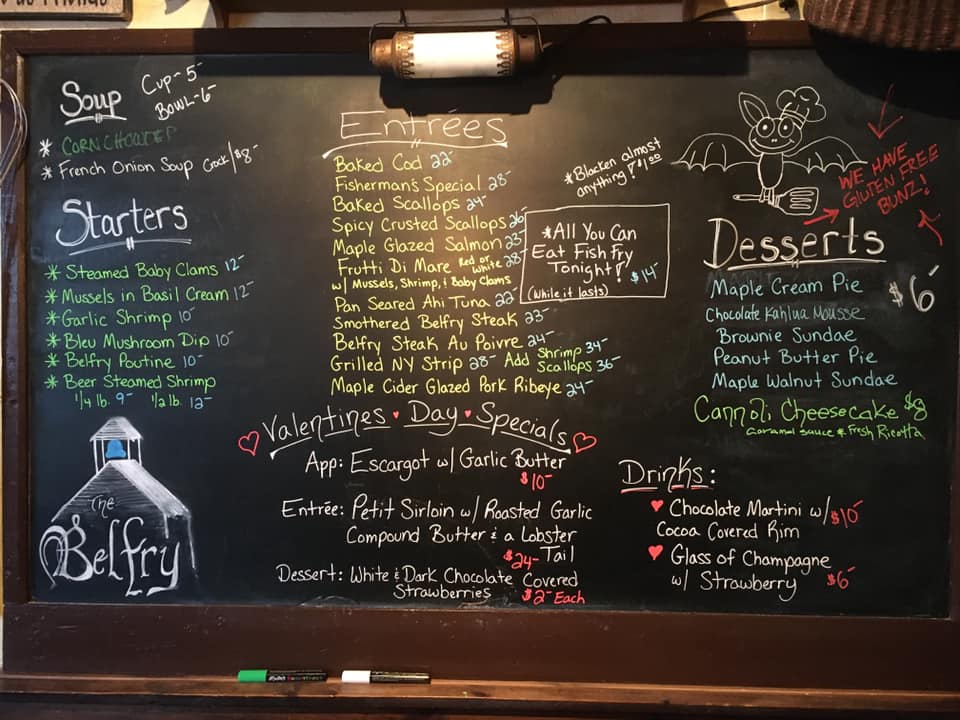 Soup Cup-5-
Bowl-6-
* CORN CHOWDER
* French Onion Soup Crock/$8-
Starters
* Steamed Baby Clams 12-
* Mussels in Basil Cream 12-
* Garlic Shrimp 10-
* Bleu Mushroom Dip 10-
* Belfry Poutine 10-
* Beer Steamed Shrimp
1/4 lb. 9- 1/2 lb. 12-
The
Belfry
Entrées
Baked Cod 22-
Fisherman's Special 28-
Baked Scallops 24-
Spicy Crusted Scallops 26-
Maple Glazed Salmon 23-
Frutti Di Mare Red or White 28-
w/ Mussels, Shrimp, & Baby Clams
Pan Seared Ahi Tuna 22-
Smothered Belfry Steak 23-
Belfry Steak Au Poivre 24-
Grilled NY Strip 28- Add Shrimp 34-
Scallops 36-
Maple Cider Glazed Pork Ribeye 24-
*Blacken almost
anything! $1.00
*All You Can
Eat Fish Fry
Tonight! $14-
(While it lasts)
Valentines Day Specials
App: Escargot w/ Garlic Butter
$10-
Entrée: Petit Sirloin w/ Roasted Garlic
Compound Butter & a Lobster
$24- Tail
Dessert: White & Dark Chocolate Covered
Strawberries $2- Each
WE HAVE
GLUTEN FREE
BUNZ!
Desserts
$6-
Maple Cream Pie
Chocolate Kahlua Mousse
Brownie Sundae
Peanut Butter Pie
Maple Walnut Sundae
Cannoli Cheesecake $8
Caramel Sauce & Fresh Ricotta
Drinks:
Chocolate Martini w/ $10-
Cocoa Covered Rim
Glass of Champagne
w/ Strawberry $6-